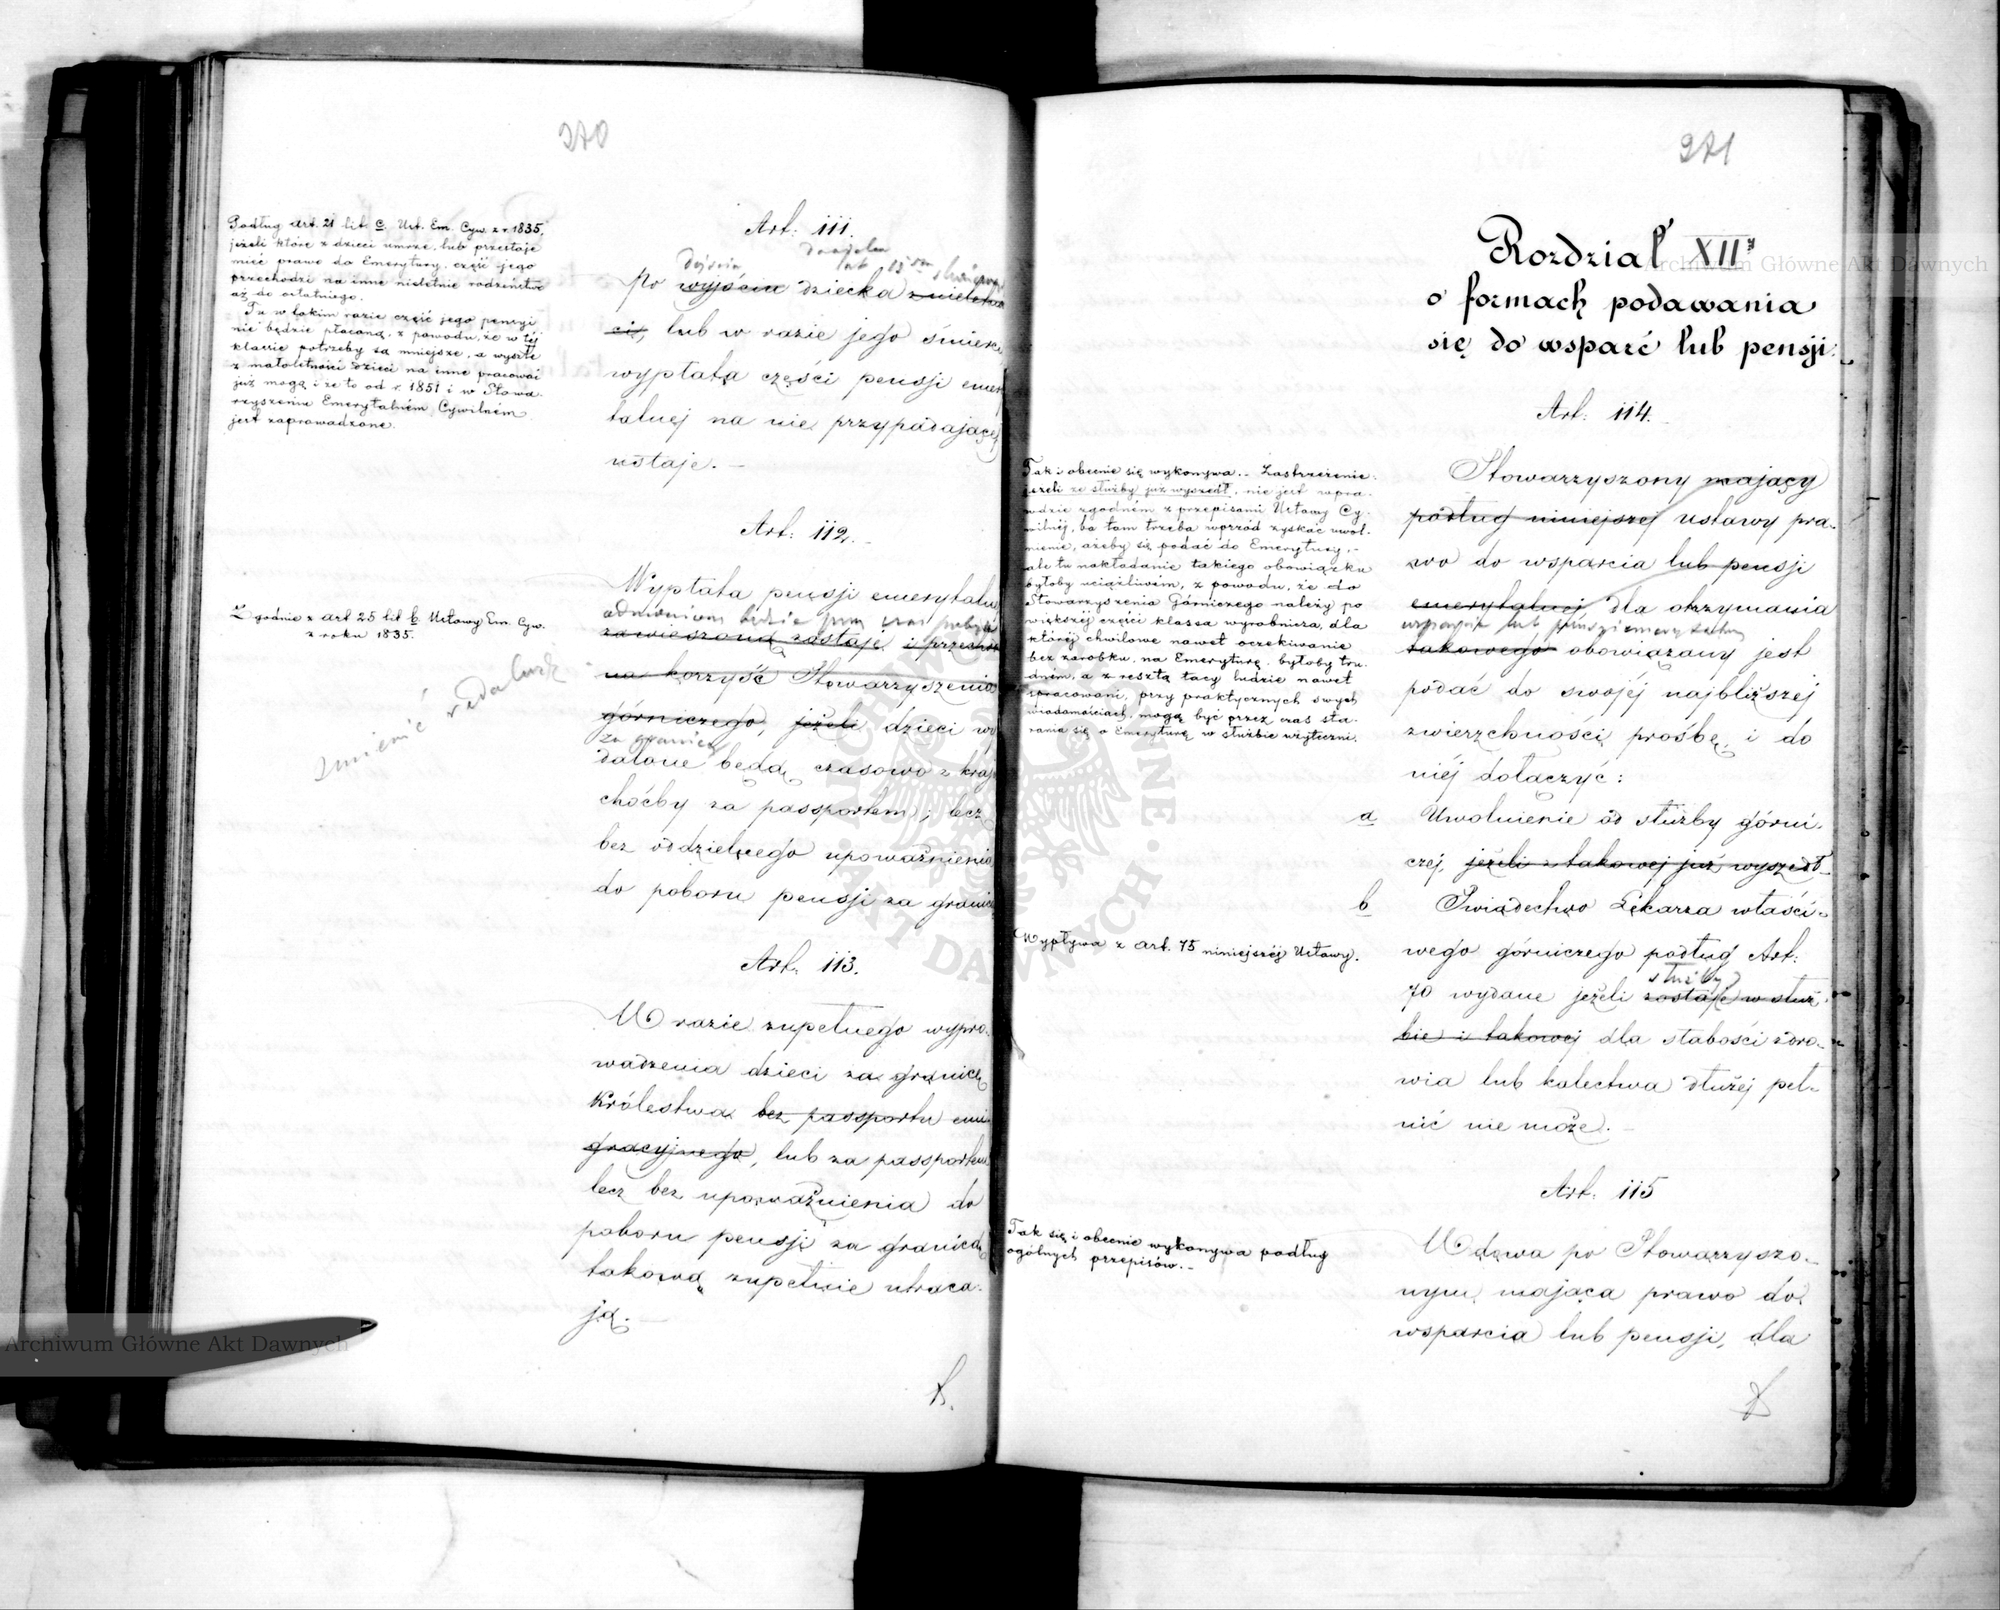 270
Podług art. 21 lit. c. Ust. Em. Cyw. z r. 1835,
jeżeli które z dzieci umrze, lub przestaje
mieć prawo do Emerytury, część jego
przechodzi na inne nieletnie rodzeństwo
aż do ostatniego.
Tu w takim razie część jego pensyi
nie będzie płaconą, z powodu, że w tej
klassie potrzeby są mniejsze, a wyszłe
z małoletności dzieci na inne pracować
już mogą i że to od r. 1851 i w Stowa-
rzyszeniu Emerytalném Cywilném
jest zaprowadzone.
Art: 111.
dojścia
lub 15
Po wyjściu dziecka z nieletno
ci, lub w razie jego śmierci
wypłata części pensji emery
talnej na nie przypadającej
ustaje.
Art: 112.
Zgodnie z art 25 lit b. Ustawy Em. Cyw.
z roku 1835.
zmienić
Wypłata pensji emerytalnej
zawieszoną zostaje i przechodzi
na korzyść Stowarzyszenia
górniczego, jeżeli dzieci wy
za granicę
dalone będą czasowo z kraju
choćby za passportem; lecz
bez oddzielnego upoważnienia
do poboru pensji za granicą
Art. 113.
W razie zupełnego wypro-
wadzenia dzieci za granicę
Królestwa bez passportu emi-
gracyjnego, lub za passportem
lecz bez upoważnienia do
poboru pensji za granicą,
takową zupełnie utraca-
ją.
271
Rozdział XII
o formach podawania
się do wsparć lub pensji.
Art: 114.
Tak i obecnie się wykonywa. Zastrzeżenie:
jeżeli ze służby już wyszedł, nie jest wpra-
wdzie zgodném z przepisami Ustawy Cy-
wilnéj, bo tam trzeba wprzód zyskać uwol-
nienie, ażeby się podać do Emerytury,
ale tu nakładanie takiego obowiązku
byłoby uciążliwém, z powodu, że do
Stowarzyszenia Górniczego należy po
większej części klassa wyrobnicza, dla
której chwilowe nawet oczekiwanie
bez zarobku, na Emeryturę, byłoby tru-
dném, a z resztą tacy ludzie nawet
spracowani, przy praktycznych swych
wiadomościach, mogą być przez czas sta-
rania się o Emeryturę w służbie użyteczni.
Stowarzyszony mający
podług niniejszej ustawy pra-
wo do wsparcia lub pensji
emerytalnej dla otrzymania
wsparcia lub pensji emerytalnej
takowego obowiązany jest
podać do swojéj najbliższej
zwierzchności prośbę, i do
niéj dołączyć:
a Uwolnienie od służby górni-
czej, jeżeli z takowej już wyszedł
b Świadectwo Lekarza właści-
Wypływa z art. 75 niniejszéj Ustawy.
wego górniczego podług Art:
służby
70 wydane jeżeli zostaje w służ-
bie i takowej dla słabości zdro-
wia lub kalectwa dłużej peł-
nić nie może.
Art: 115
Tak się i obecnie wykonywa podług
ogólnych przepisów.
Wdowa po Stowarzyszo-
nym, mająca prawo do
wsparcia lub pensji, dla
ARCHIWUM AKT DAWNYCH
Archiwum Główne Akt Dawnych
Archiwum Główne Akt Dawnych